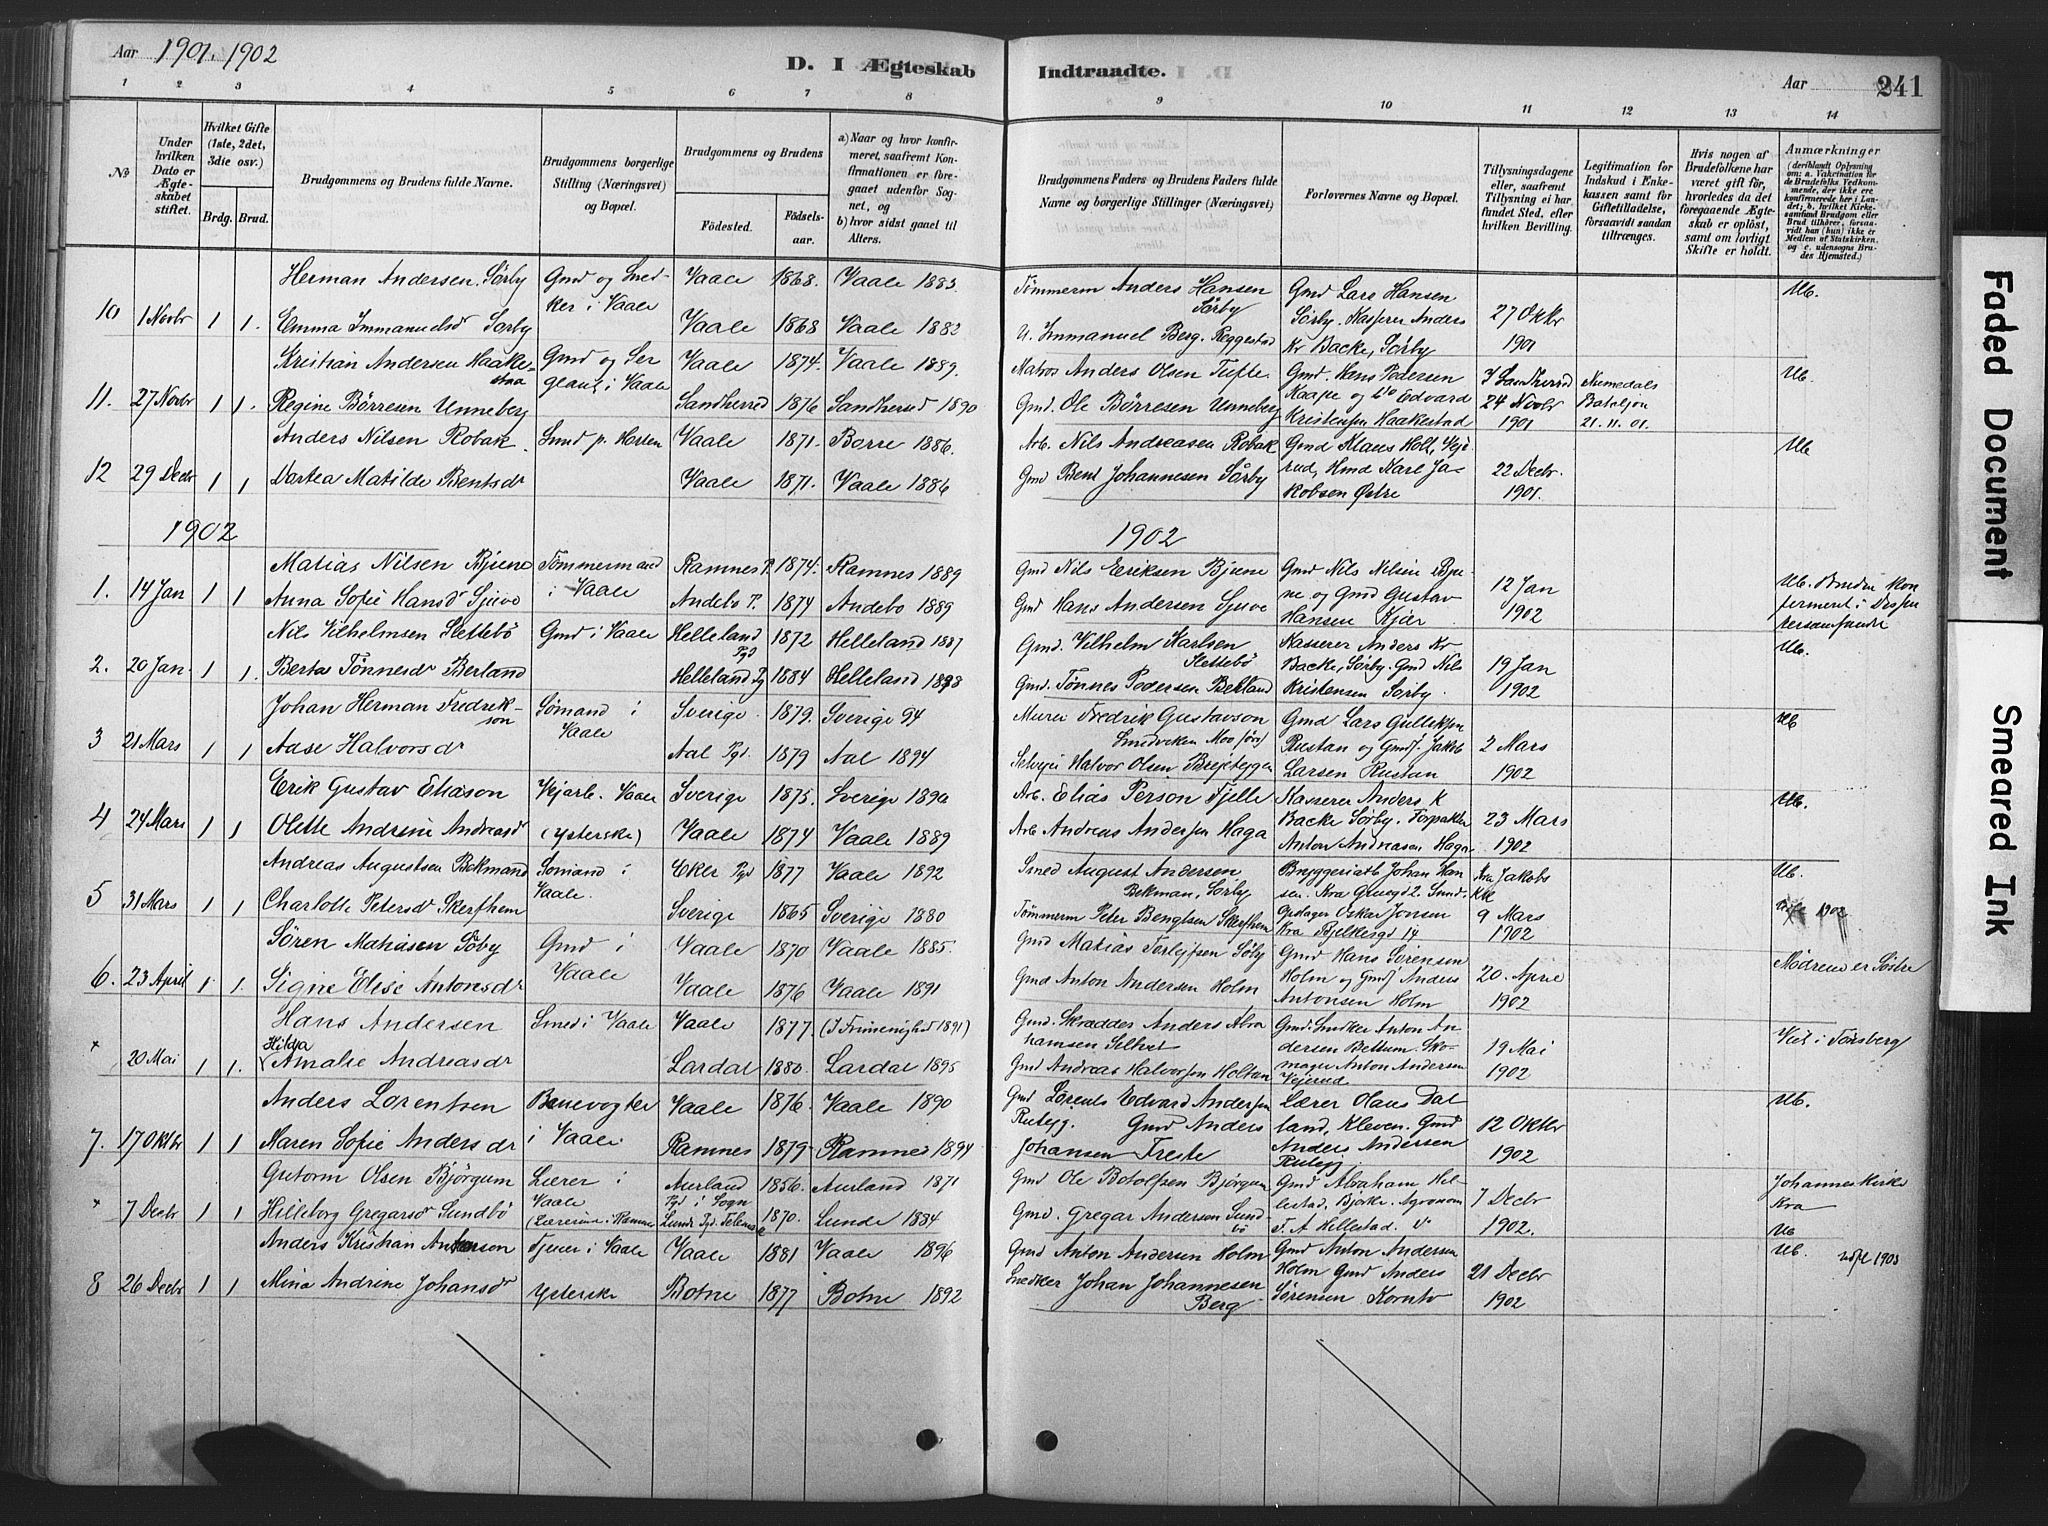 Aar 1901. 1902
D. I Ægteskab Indtraadte.
Aar 241
1 2 3 4 5 6 7 8 9 10 11 12 13 14
№
Under hvilken Dato er Ægteskabet stiftet.
Hvilket Gifte (1ste, 2det, 3die osv.)
Brdg. Brud.
Brudgommens og Brudens fulde Navne.
Brudgommens borgerlige Stilling (Næringsvei) og Bopæl.
Brudgommens og Brudens
Fødested. Fødselsaar.
a) Naar og hvor konfirmeret, saafremt Konfirmationen er foregaaet udenfor Sognet, og
b) hvor sidst gaaet til Alters.
Brudgommens Faders og Brudens Faders fulde Navne og borgerlige Stillinger (Næringsvei)
Forlovernes Navne og Bopæl.
Tillysningsdagene eller, saafremt Tillysning ei har fundet Sted, efter hvilken Bevilling.
Legitimation for Indskud i Enkekassen samt for Giftetilladelse, forsaavidt saadan tiltrænges.
Hvis nogen af Brudefolkene har været gift før, hvorledes da det foregaaende Ægteskab er opløst, samt om lovligt Skifte er holdt.
Anmærkninger (deriblandt Oplysning om: a. Vakcination for de Brudefolks Vedkommende, der ikke ere konfirmerede her i Landet; b. hvilket Kirkesamfund Brudgom eller Brud tilhører, forsaavidt han (hun) ikke er Medlem af Statskirken, og c. udensogns Brudes Hjemsted.)
Herman Andersen Sørby Gmd og Sned- Vaale 1868. Vaale 1883. Tømmerm Anders Hansen Sørby Gmd Lars Hansen Ub.
10 1 Novbr 1 1. Emma Immanuelsdr Sørby ker i Vaale Vaale 1868 Vaale 1882 U. Immanuel Berg. Reggestad Sørby. Kasserer Anders Kr Backe, Sørby 27 Oktbr 1901
Kristian Andersen Haakestaa Gmd og Ser- Vaale 1874. Vaale 1889. Matros Anders Olsen Tufte Gmd. Hans Pedersen I Sandherred Numedals Ub.
11. 27 Novbr 1 1. Regine Børresen Unneberg geant i Vaale Sandherred 1876 Sandherred 1890 Gmd. Ole Børresen Unneberg Kaape og do Edvard Kristensen Haakestad 24 Novbr 1901 Bataljon 21.11.01.
Anders Nilsen Robak. Smed p. Horten Vaale 1871. Borre 1886. Arb. Nils Andreasen Robak Gmd Klaus Holt, Veje- Ub
12 29 Decbr 1 1 Dortea Matilde Bentsdr Vaale 1871. Vaale 1886 Gmd Bent Johannesen Sørby rud, Hmd Karl Jakobsen Østre 22 Decbr. 1901.
1902 1902
Matias Nilsen Bjune Tømmermand Ramnes P. 1874. Ramnes 1889 Gmd Nils Eriksen Bjune Gmd Nils Nilsen Bju-
1. 14 Jan 1 1 Anna Sofie Hansdr Sjuve i Vaale Andebo P. 1874 Andebo 1889 Gmd Hans Andersen Sjuve ne og Gmd Gustav Hansen Kjær 12 Jan 1902 Ub. Bruden konfermeret i Dissentersamfundet
Nils Vilhelmsen Slettebö Gmd i Vaale Helleland Pgd 1872 Helleland 1887 Gmd. Vilhelm Karlsen Slettebö Kasserer Anders Kr Ub.
2. 20 Jan 1 1. Berta Tønnesdr Berland Helleland Pg 1884 Helleland 1898 Gmd. Tønnes Pedersen Berland Backe, Sørby. Gmd Nils Kristensen Sørby. 19 Jan 1902
Johan Herman Fredrikson Sømand i Vaale Sverige 1879. Sverige 94 Murer Fredrik Gustavson Gmd Lars Gulliksen Ub
3 21 Mars 1 1 Aase Halvorsdr Aal Pgd. 1879 Aal 1894 Halvor Olsen Rustan og Gmds. Jakob Larsen Rustan 2 Mars 1902
Erik Gustav Eliason Vejarb. Vaale Sverige 1875. Sverige 1890 Arb. Elias Person Fjelle Kasserer Anders K Ub.
4 24 Mars 1 1 Olette Andrine Andreasdr (Ysterske) Vaale 1874 Vaale 1889 Arb Andreas Andersen Haga Backe Sørby. Forpakter Anton Andreasen Haga 23 Mars 1902
Andreas Augustsen Bekmand Sømand i Vaale. Eker Pgd 1877 Vaale 1892 Smed August Andersen Bekman, Sørby Bryggeriarb Johan Han- Kra Jakobs K Ub.
5 31 Mars 1 1 Charlotte Petersdr Skerfhem Sverige 1865 Sverige 1880 Tømmerm Peter Bengtsen Skerfhem Oskar Jonsen Kra 14 9 Mars 1902 1902
Søren Matiasen Söby Gmd i Vaale 1870 Vaale 1885. Gmd Matias Sørby Gmd Hans Sørensen Mødrene er Søstre
6. 23 April 1. 1. Signe Elise Antonsdr Vaale Vaale 1876 Vaale 1891 Gmd Anton Andersen Holm Holm og Gmds Anders Antonsen Holm 20. April 1902
Hans Andersen Smed i Vaale Vaale 1877. (I Frimenighed 1891) Gmd. Skrædder Anders Abra- Gmd. Snedker Anton An-
× 20 Mai 1 1. Hilda Amalie Andreasdr Lardal 1880. Lardal 1895 hamsen Gmd Andreas Halvorsen Holtan dersen Bettum. Skomager Anton Andersen Vejerud 19 Mai 1902 Viet i Tønsberg
Anders Lorentsen Banevogter Vaale 1876. Vaale 1890 Gmd Lorents Edvard Andersen Lærer Olaus Dal- Ub.
7. 17 Oktbr 1 1 Maren Sofie Andersdr i Vaale. Ramnes 1879 Ramnes 1894 Gmd Anders Johansen Freste land, Kleven. Gmd Anders Andersen 12 Oktbr 1902
Gutorm Olsen Bjørgum Lærer i Vaale Aurland Pgd i Sogn 1856. Aurland 1871 Gmd Ole Botolfsen Bjørgum Gmd Abraham Hil- Johanneskirke Kra
× 7 Decbr 1 1 Hilleborg Gregarsdr Sundbö (Lærerinde i Ramnes Lunde Pgd. Telemark 1870. Lunde 1884 Gmd. Gregar Anderson Sundbö lestad, Bjørke. Agronom F. A Hillestad. 7 Decbr 1902. Ub
Anders Kristian Antonson Tjener i Vaale Vaale 1881 Vaale 1896 Gmd Anton Andersen Holm Gmd Anton Andersen Ub. 1903
8 26 Decbr 1 1 Mina Andrine Johansdr Ysterske Botne 1877 Botne 1892 Snedker Johan Johannesen Berg Holm Gmd Anders Sørensen 21 Decbr 1902
Faded Document
Smeared Ink